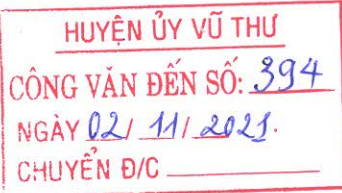 HUYỆN ỦY VŨ THƯ
CÔNG VĂN ĐẾN SỐ: 394
NGÀY 02/ 11/ 2021.
CHUYỂN Đ/C